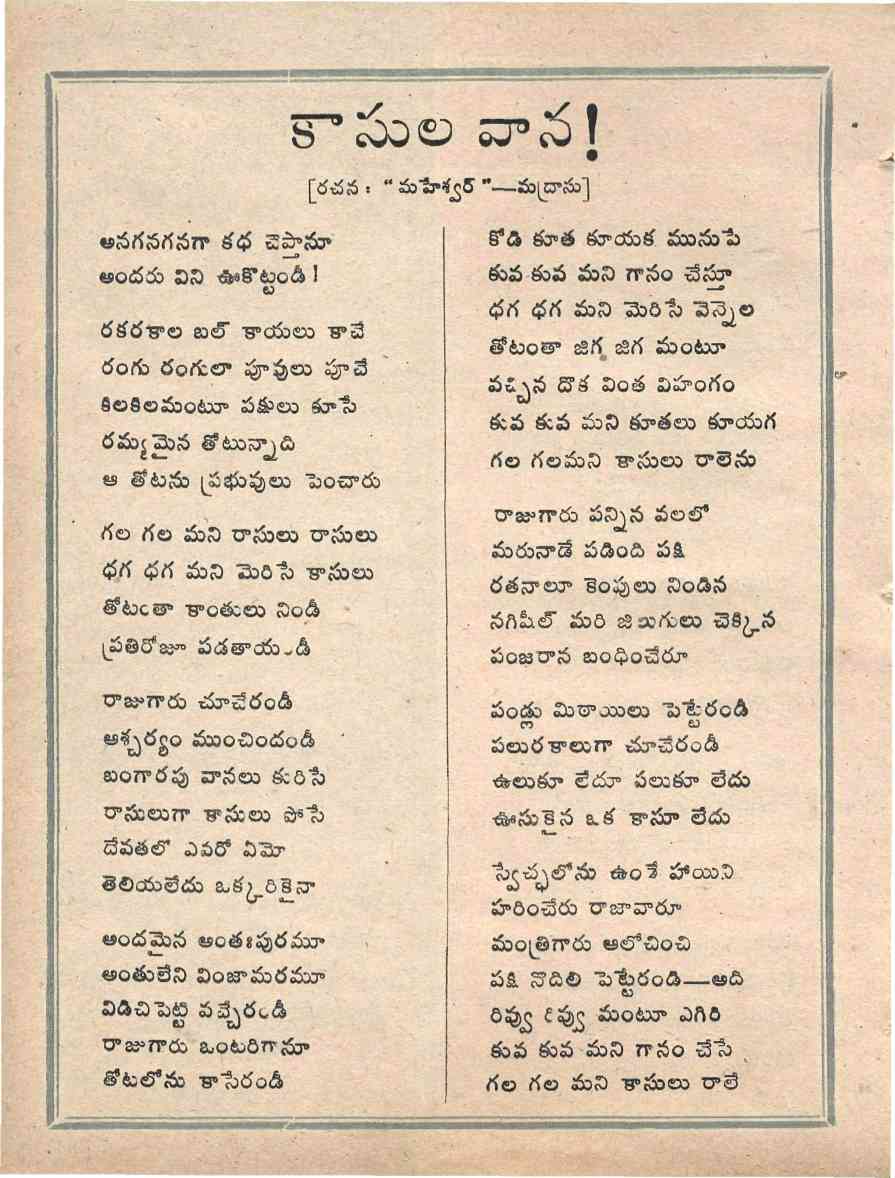 కాసుల వాన!
[రచన : “ మహేశ్వర్ ”—మద్రాసు]
అనగనగనగా కధ చెప్తానూ
అందరు విని ఊకొట్టండీ !
రకరకాల బల్ కాయలు కాచే
రంగు రంగులా పూవులు పూచే
కిలకిలమంటూ పక్షులు కూసే
రమ్యమైన తోటున్నాది
ఆ తోటను ప్రభువులు పెంచారు
గల గల మని రాసులు రాసులు
ధగ ధగ మని మెరిసే కాసులు
తోటంతా కాంతులు నిండీ
ప్రతిరోజూ పడతాయండీ
రాజుగారు చూచేరండీ
ఆశ్చర్యం ముంచిందండీ
బంగారపు వానలు కురిసే
రాసులుగా కాసులు పోసే
దేవతలో ఎవరో ఏమో
తెలియలేదు ఒక్కరికైనా
అందమైన అంతఃపురమూ
అంతులేని వింజామరమూ
విడిచిపెట్టి వచ్చేరండీ
రాజుగారు ఒంటరిగానూ
తోటలోను కాసేరండీ
కోడి కూత కూయక మునుపే
కువ కువ మని గానం చేస్తూ
ధగ ధగ మని మెరిసే వెన్నెల
తోటంతా జిగ జిగ మంటూ
వచ్చిన దొక వింత విహంగం
కువ కువ మని కూతలు కూయగ
గల గలమని కాసులు రాలెను
రాజుగారు పన్నిన వలలో
మరునాడే పడింది పక్షి
రతనాలూ కెంపులు నిండిన
నగిషీల్ మరి జిలుగులు చెక్కిన
పంజరాన బంధించేరూ
పండ్లు మిఠాయిలు పెట్టేరండీ
పలురకాలుగా చూచేరండీ
ఉలుకూ లేదూ పలుకూ లేదు
ఊసుకైన ఒక కాసూ లేదు
స్వేచ్ఛలోను ఉండే హాయిని
హరించేరు రాజావారూ
మంత్రిగారు ఆలోచించి
పక్షి నొదిలి పెట్టేరండి—అది
రివ్వు రివ్వు మంటూ ఎగిరి
కువ కువ మని గానం చేసే
గల గల మని కాసులు రాలే